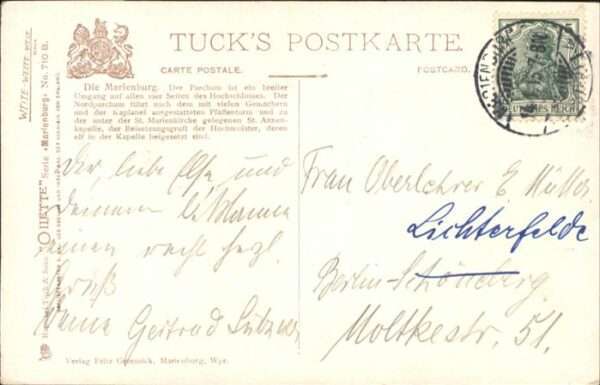 TUCK'S POSTKARTE.
CARTE POSTALE.
POSTCARD.
Die Marienburg. Der Parcham ist ein breiter
Umgang auf allen vier Seiten des Hochschlosses. Der
Nordparcham führt nach dem mit vielen Gemächern
und der Kaplanei ausgestatteten Pfaffenturm und zu
der unter der St. Marienkirche gelegenen St. Annen-
kapelle, der Beisetzungsgruft der Hochmeister, deren
elf in der Kapelle beigesetzt sind.
WRITE-WEITE-WEIT
"OILETTE" Serie "Marienburg" No. 710 B.
Raphael Tuck & Sons
DEUTSCHES REICH
Dir, liebe Else, und
deinem lb. Manne
einen recht herzl.
Gruß
Deine Gertrud
Frau Oberlehrer E. Müller
Lichterfelde
Berlin-Schöneberg
Moltkestr. 51.
Verlag Felix Marienburg, Wpr.